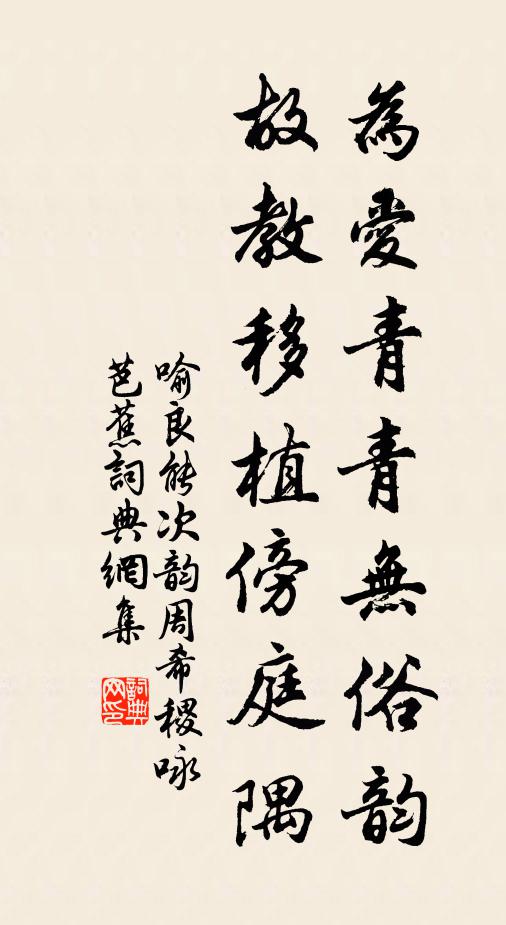 為愛青青無俗韵
故教移植傍庭隅
喻良能次韵周希稷咏
芭蕉詞典網集
詞典网印